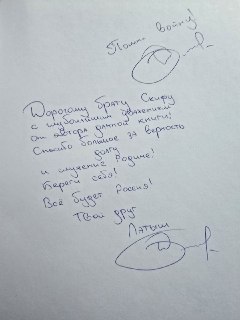 Помни войну!
Дорогому брату Скифу
с глубочайшим уважением
от автора данной книги!
Спасибо большое за верность
долгу
и служение Родине!
Береги себя!
Всё будет Россия!
Твой друг
Латыш